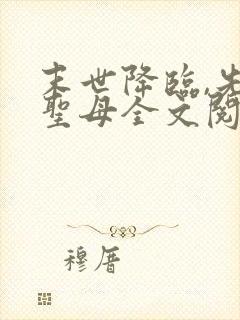 末世降臨,先
聖母全文閱
穆厝